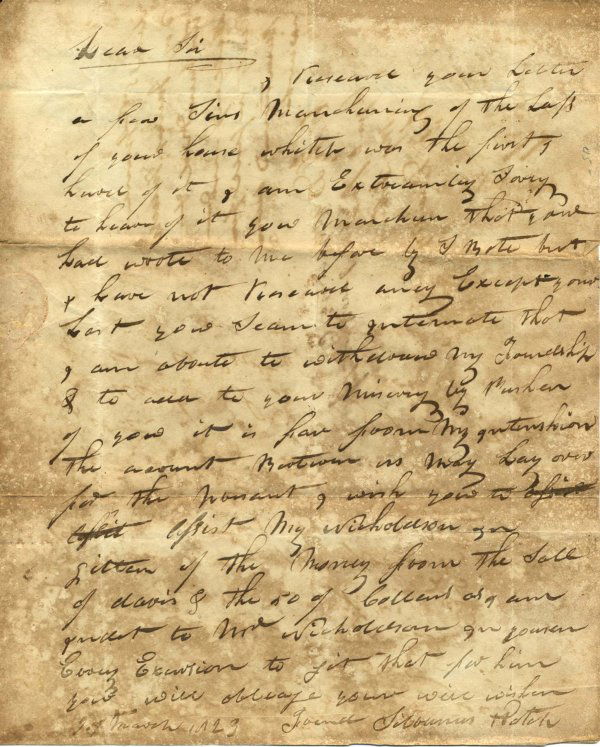 Dear Sir
I Reseaved your Letter
a few Tims Manchening of the Lofs
of your house whitch was the first I
heard of it I am Extreamley Sorey
to heare of it you Manchen that you
had wrote to Me before by I Bote but
I have not Reseaved aney Except your
Last you Seam to Internate that
I am aboute to withdraw my Friendship
& to add to your Misery by Pushen
of you it is far from My Intenshion
the acount Bootwen us May Lay over
for the Prasant I wish you to
Afsist My Nicholdson In
gitten of the Money from the Sall
of davis & the 50 of Collens as I am
Indet to Mr Nicholdson In yousen
Every Exarsion to git that for him
you will obleage your well wisher
March 1823 Friend Silvanus Hatch